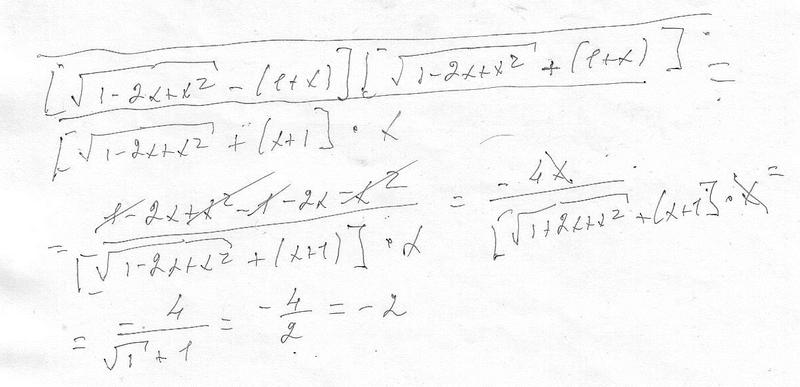 [√(1-2x+x²) - (1+x)][√(1-2x+x²) + (1+x)] / =
[√(1-2x+x²) + (x+1] · x
= (1-2x+x²-1-2x-x²) / ([√(1-2x+x²) + (x+1)] · x) = -4x / ([√(1+2x+x²) + (x+1] · x) =
= -4 / (√1 + 1) = -4/2 = -2